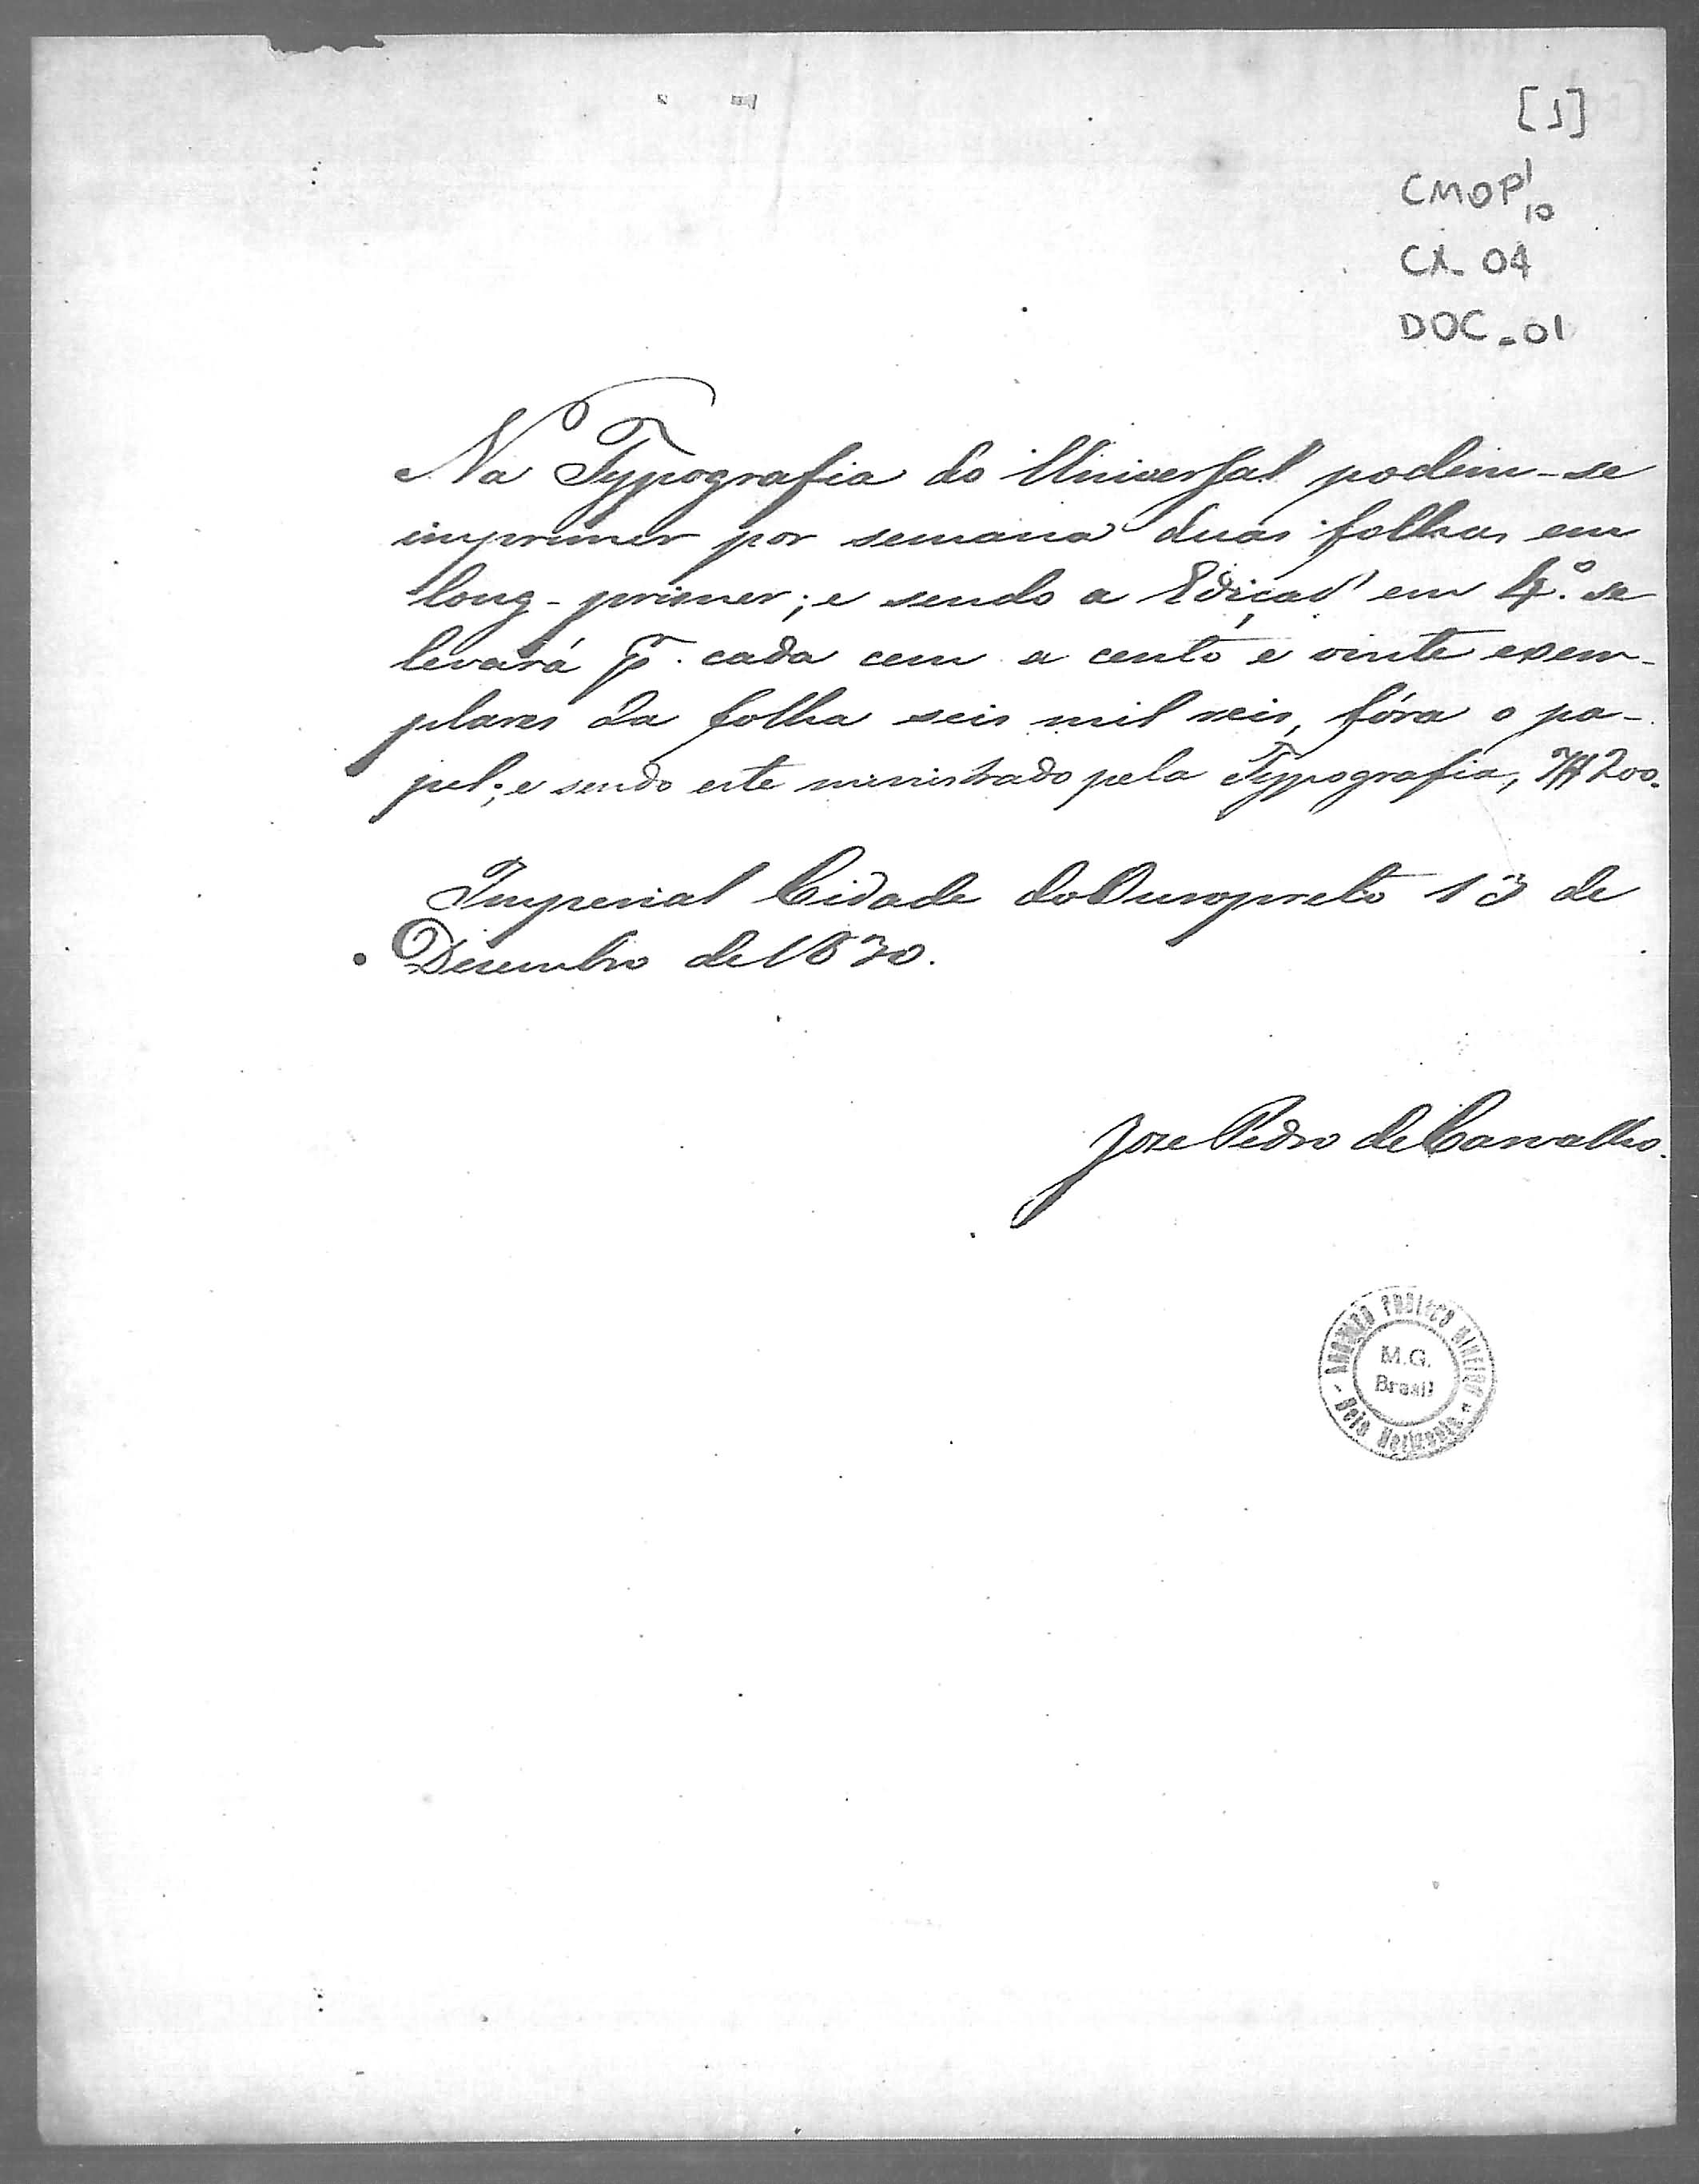 [1]
CMOP 1/10
CX_04
DOC_01
Na Typografia do Universal podem-se
imprimir por semana duas folhas em
long-primer; e sendo a Ediçaõ em 4.º se
levará p.r cada cem a cento e vinte exem-
plares da folha seis mil reis, fóra o pa-
pel; e sendo este ministrado pela Typografia, 7$200.
Imperial Cidade do Ouropreto 13 de
Dezembro de 1830.
Jose Pedro de Carvalho.
ARCHIVO PUBLICO MINEIRO
M.G.
Brasil
Belo Horizonte